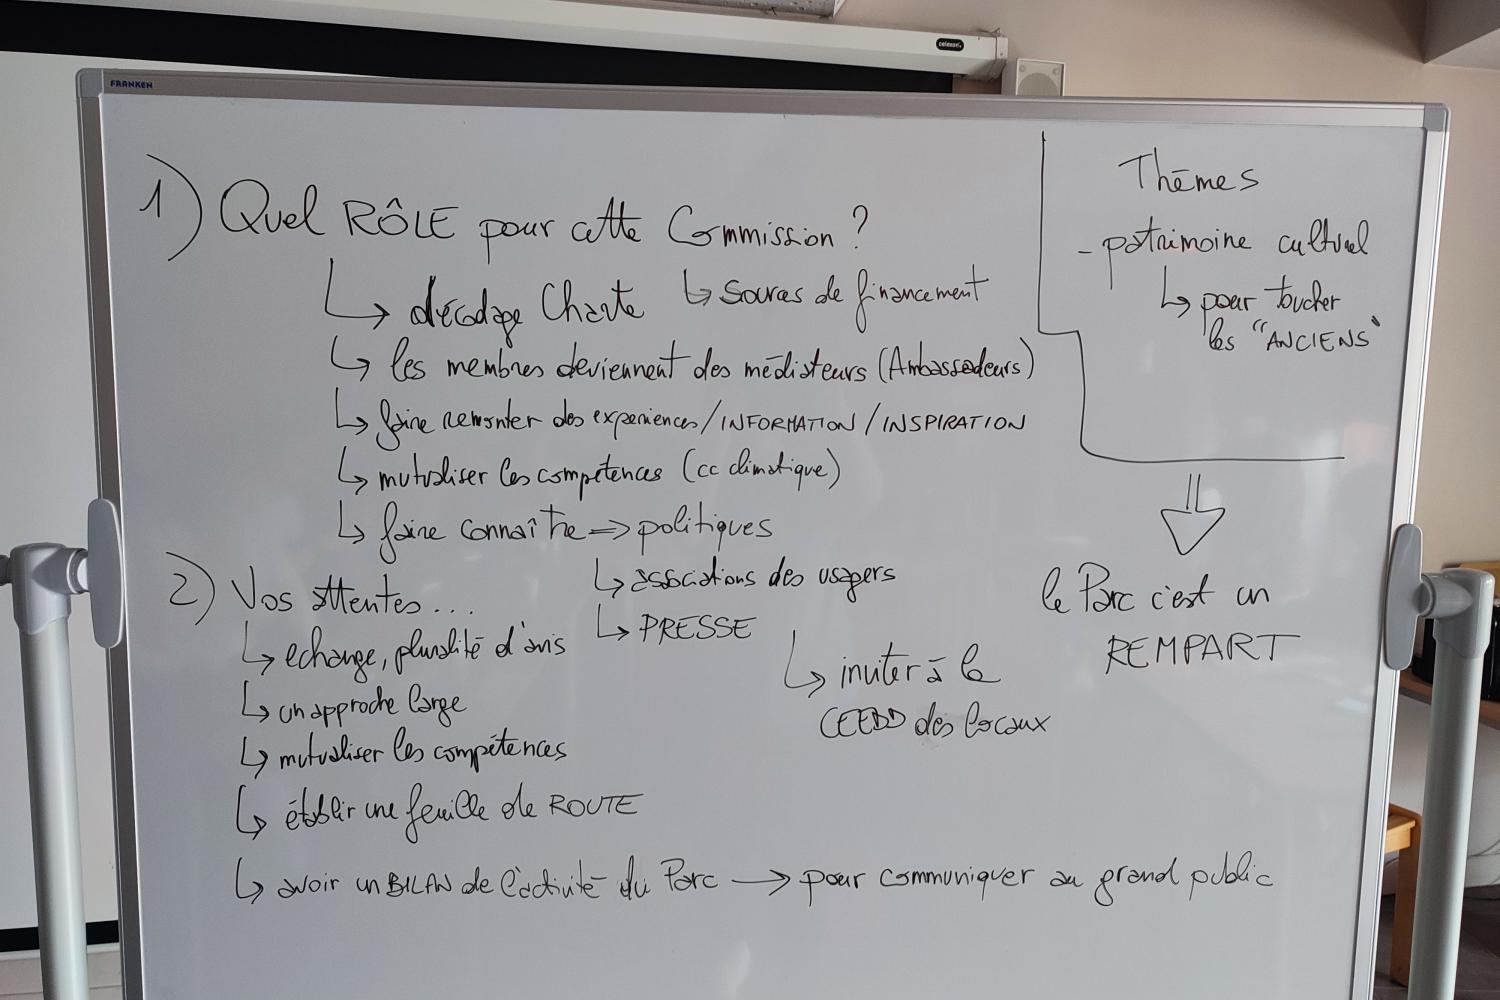 celexon
FRANKEN
1) Quel RÔLE pour cette Commission ?
↳ décodage Charte ↳ sources de financement
↳ les membres deviennent des médiateurs (Ambassadeurs)
↳ faire remonter des experiences/INFORMATION/INSPIRATION
↳ mutualiser les compétences (cc climatique)
↳ faire connaître => politiques
↳ associations des usagers
↳ PRESSE
↳ inviter à la
CEEDD des locaux
2) Vos attentes...
↳ echange, pluralité d'avis
↳ un approche large
↳ mutualiser les compétences
↳ établir une feuille de ROUTE
↳ avoir un BILAN de l'activité du Parc → pour communiquer au grand public
Thèmes
- patrimoine culturel
↳ pour toucher
les "ANCIENS"
⇓
le Parc c'est un
REMPART